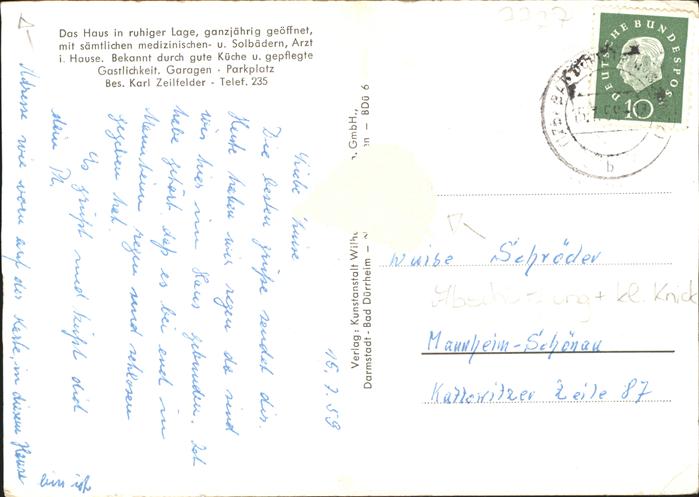 Das Haus in ruhiger Lage, ganzjährig geöffnet,
mit sämtlichen medizinischen- u. Solbädern, Arzt
i. Hause. Bekannt durch gute Küche u. gepflegte
Gastlichkeit. Garagen - Parkplatz
Bes. Karl Zeilfelder - Telef. 235
15.7.59
Liebe Luise
Die besten Grüße sendet dir.
Heute haben wir regen da sind
wir hier im Haus gebunden. Ich
habe gehört daß es bei euch in
Mannheim regen und schlosen
gegeben hat.
Es grüßt und küßt dich
dein
Adresse wie vorn auf der Karte, in diesem Hause
bin ich
Verlag: Kunstanstalt Wilhe , GmbH.,
Darmstadt - Bad Dürrheim - en - BDü 6
DEUTSCHE BUNDESPOST
10
b
Luise Schröder
+ kl. Knick
Mannheim-Schönau
Kattowitzer Zeile 87